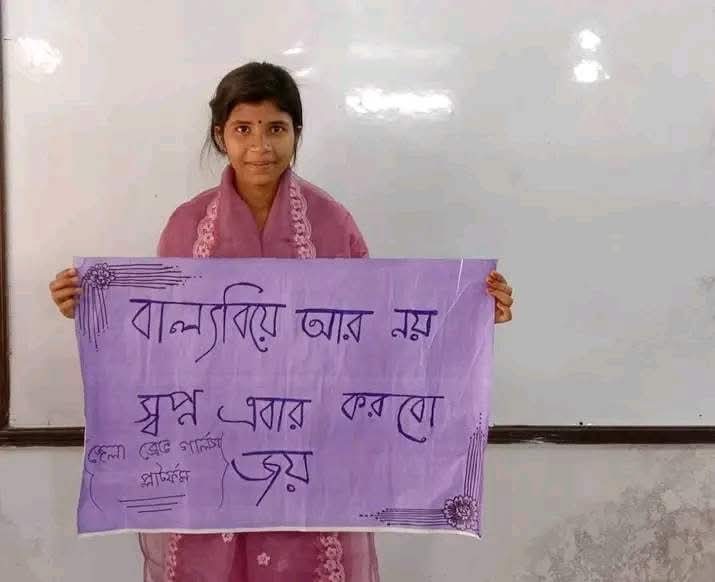 বাল্যবিয়ে আর নয়
স্বপ্ন এবার করবো
জয়
জেলা ব্রেভ গার্লস
প্লাটফর্ম